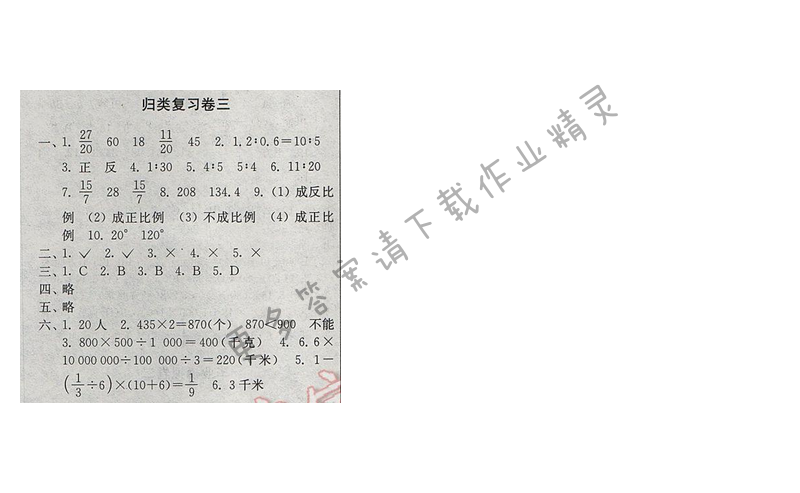 归类复习卷三
一、1. 27/20 60 18 11/20 45 2. 1.2∶0.6＝10∶5
3. 正 反 4. 1∶30 5. 4∶5 5∶4 6. 11∶20
7. 15/7 28 15/7 8. 208 134.4 9. (1) 成反比
例 (2) 成正比例 (3) 不成比例 (4) 成正比
例 10. 20° 120°
二、1. ✓ 2. ✓ 3. × 4. × 5. ×
三、1. C 2. B 3. B 4. B 5. D
四、略
五、略
六、1. 20 人 2. 435×2＝870(个) 870<900 不能
3. 800×500÷1 000＝400(千克) 4. 6.6×
10 000 000÷100 000÷3＝220(千米) 5. 1－
(1/3÷6)×(10＋6)＝1/9 6. 3 千米
更多答案请下载作业精灵